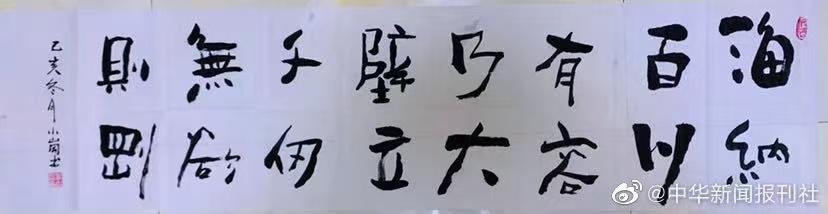 海納
百川
有容
乃大
壁立
千仞
無欲
則剛
己亥冬月小崗士
@中华新闻报刊社